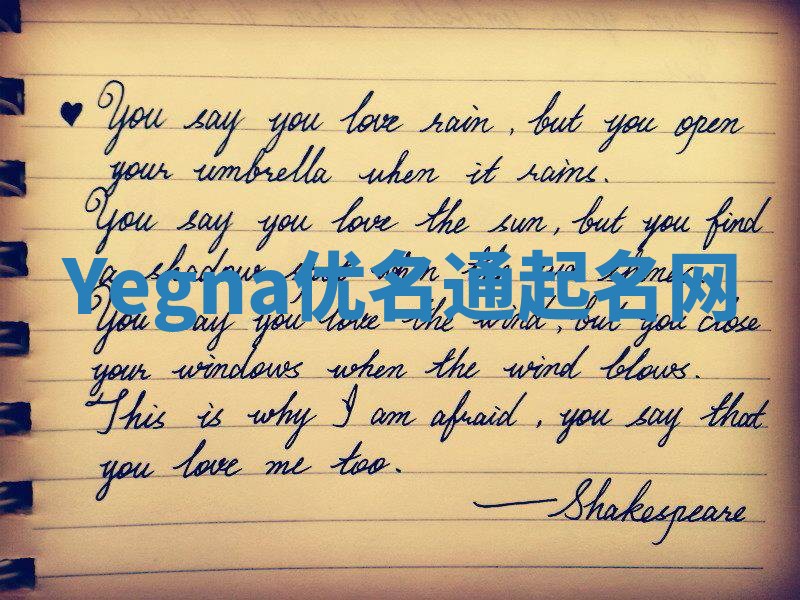 ♥ You say you love rain, but you open
your umbrella when it rains.
You say you love the sun, but you find
a shadow spot when the sun shines.
Yegna优名通起名网
You say you love the wind, but you close
your windows when the wind blows.
This is why I am afraid, you say that
you love me too.
— Shakespeare